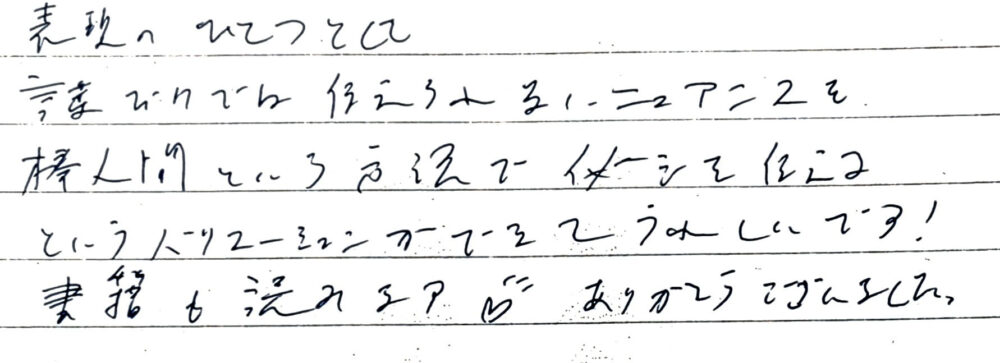 表現のひとつとして
言葉だけでは伝えられないニュアンスを
棒人間という方法でイメージを伝える
というバリエーションができてうれしいです!
書籍も読みます ありがとうございました。